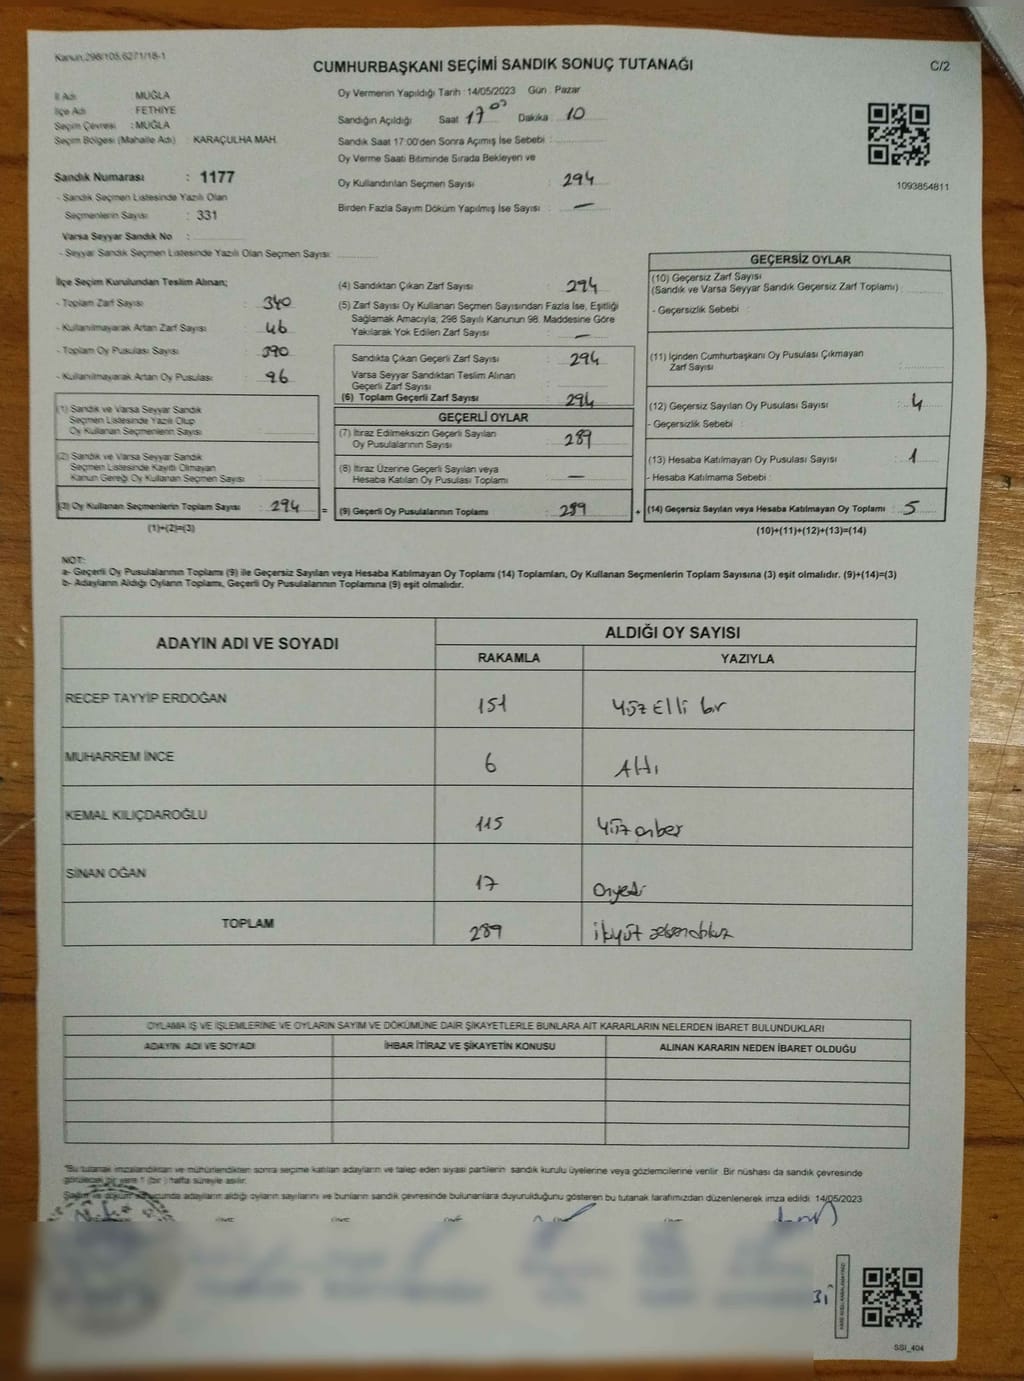 Kanun.298/105,6271/18-1
CUMHURBAŞKANI SEÇİMİ SANDIK SONUÇ TUTANAĞI
C/2
İl Adı : MUĞLA
İlçe Adı : FETHİYE
Seçim Çevresi : MUĞLA
Seçim Bölgesi (Mahalle Adı) : KARAÇULHA MAH.
Sandık Numarası : 1177
- Sandık Seçmen Listesinde Yazılı Olan
Seçmenlerin Sayısı : 331
Varsa Seyyar Sandık No :
- Seyyar Sandık Seçmen Listesinde Yazılı Olan Seçmen Sayısı:
Oy Vermenin Yapıldığı Tarih : 14/05/2023 Gün : Pazar
Sandığın Açıldığı Saat 17 00 Dakika : 10
Sandık Saat 17:00'den Sonra Açımış İse Sebebi :
Oy Verme Saati Bitiminde Sırada Bekleyen ve
Oy Kullandırılan Seçmen Sayısı : 294
Birden Fazla Sayım Döküm Yapılmış İse Sayısı : —
1093854811
İlçe Seçim Kurulundan Teslim Alınan;
- Toplam Zarf Sayısı : 340
- Kullanılmayarak Artan Zarf Sayısı : 46
- Toplam Oy Pusulası Sayısı : 390
- Kullanılmayarak Artan Oy Pusulası : 96
(1) Sandık ve Varsa Seyyar Sandık
Seçmen Listesinde Yazılı Olup
Oy Kullanan Seçmenlerin Sayısı :
(2) Sandık ve Varsa Seyyar Sandık
Seçmen Listesinde Kayıtlı Olmayan
Kanun Gereği Oy Kullanan Seçmen Sayısı :
(3) Oy Kullanan Seçmenlerin Toplam Sayısı : 294 =
(1)+(2)=(3)
(4) Sandıktan Çıkan Zarf Sayısı : 294
(5) Zarf Sayısı Oy Kullanan Seçmen Sayısından Fazla İse, Eşitliği
Sağlamak Amacıyla, 298 Sayılı Kanunun 98. Maddesine Göre
Yakılarak Yok Edilen Zarf Sayısı : —
Sandıkta Çıkan Geçerli Zarf Sayısı : 294
Varsa Seyyar Sandıktan Teslim Alınan
Geçerli Zarf Sayısı :
(6) Toplam Geçerli Zarf Sayısı : 294
GEÇERLİ OYLAR
(7) İtiraz Edilmeksizin Geçerli Sayılan
Oy Pusulalarının Sayısı : 289
(8) İtiraz Üzerine Geçerli Sayılan veya
Hesaba Katılan Oy Pusulası Toplamı : —
(9) Geçerli Oy Pusulalarının Toplamı : 289 +
GEÇERSİZ OYLAR
(10) Geçersiz Zarf Sayısı
(Sandık ve Varsa Seyyar Sandık Geçersiz Zarf Toplamı) :
- Geçersizlik Sebebi :
(11) İçinden Cumhurbaşkanı Oy Pusulası Çıkmayan
Zarf Sayısı :
(12) Geçersiz Sayılan Oy Pusulası Sayısı : 4
- Geçersizlik Sebebi :
(13) Hesaba Katılmayan Oy Pusulası Sayısı : 1
- Hesaba Katılmama Sebebi :
(14) Geçersiz Sayılan veya Hesaba Katılmayan Oy Toplamı : 5
(10)+(11)+(12)+(13)=(14)
NOT:
a- Geçerli Oy Pusulalarının Toplamı (9) ile Geçersiz Sayılan veya Hesaba Katılmayan Oy Toplamı (14) Toplamları, Oy Kullanan Seçmenlerin Toplam Sayısına (3) eşit olmalıdır. (9)+(14)=(3)
b- Adayların Aldığı Oyların Toplamı, Geçerli Oy Pusulalarının Toplamına (9) eşit olmalıdır.
ADAYIN ADI VE SOYADI
ALDIĞI OY SAYISI
RAKAMLA YAZIYLA
RECEP TAYYİP ERDOĞAN 151 Yüz Elli bir
MUHARREM İNCE 6 Altı
KEMAL KILIÇDAROĞLU 115 Yüz onbeş
SİNAN OĞAN 17 Onyedi
TOPLAM 289 ikiyüz seksendokuz
OYLAMA İŞ VE İŞLEMLERİNE VE OYLARIN SAYIM VE DÖKÜMÜNE DAİR ŞİKAYETLERLE BUNLARA AİT KARARLARIN NELERDEN İBARET BULUNDUKLARI
ADAYIN ADI VE SOYADI İHBAR İTİRAZ VE ŞİKAYETİN KONUSU ALINAN KARARIN NEDEN İBARET OLDUĞU
*Bu tutanak imzalandıktan ve mühürlendikten sonra seçime katılan adayların ve talep eden siyasi partilerin sandık kurulu üyelerine veya gözlemcilerine verilir. Bir nüshası da sandık çevresinde
görülecek bir yere 1 (bir) hafta süreyle asılır.
Sayım ve döküm sonucunda adayların aldığı oyların sayılarını ve bunların sandık çevresinde bulunanlara duyurulduğunu gösteren bu tutanak tarafımızdan düzenlenerek imza edildi. 14/05/2023
SSI_404